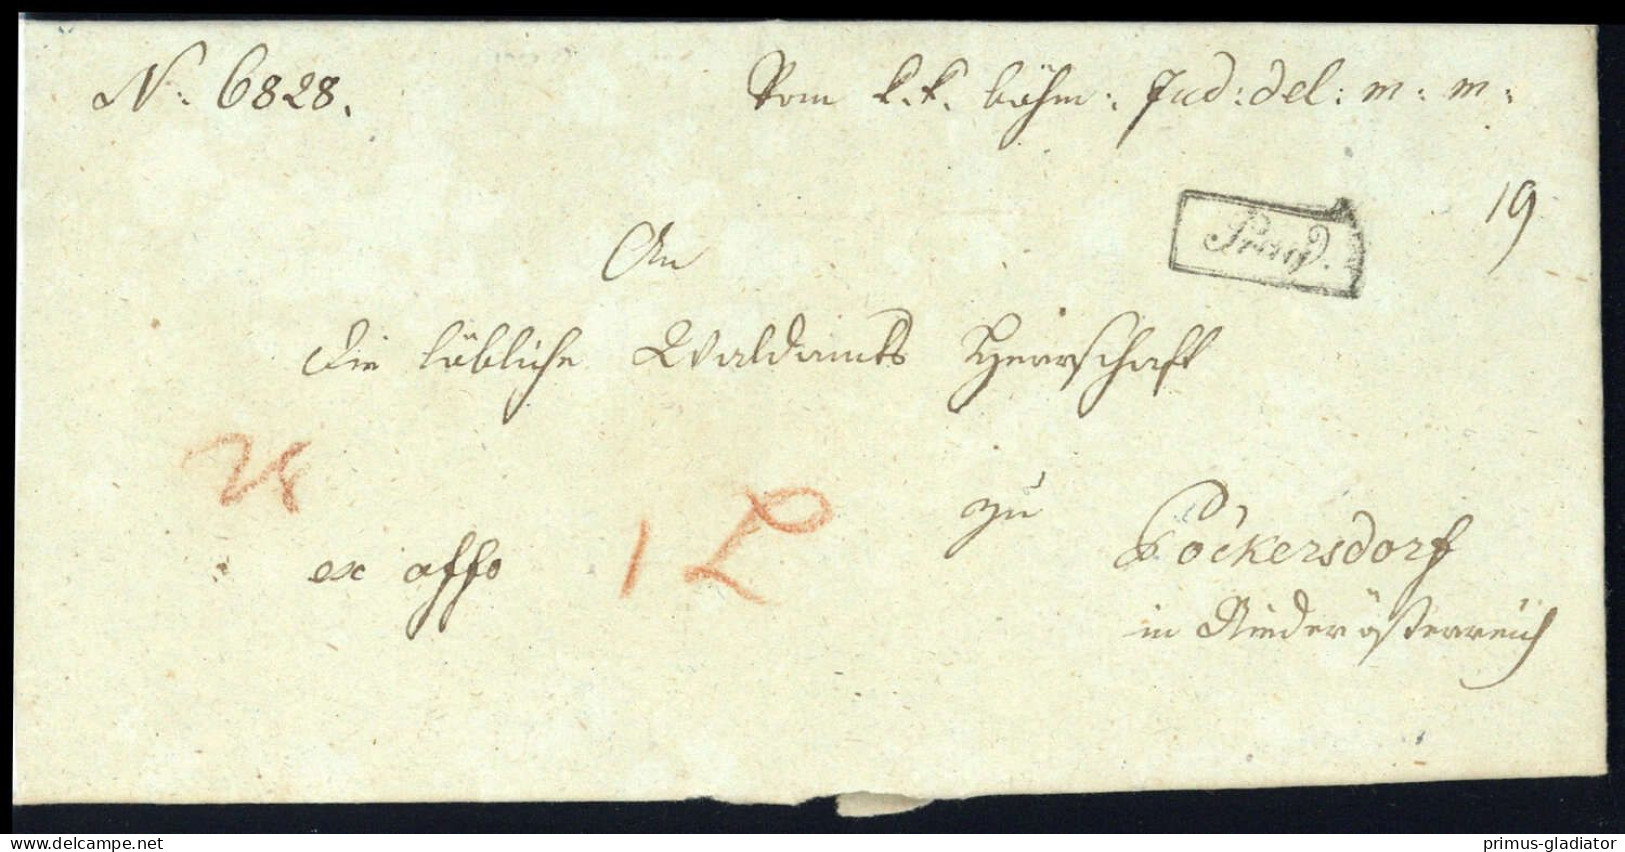 N: 6828.
Vom k. k. böhm: Jud: del: m: m:
19
Prag.
An
die löbliche Waldamts Herrschaft
zu Pöckersdorf
ex offo
in Niederösterreich
delcampe.net
primus-gladiator